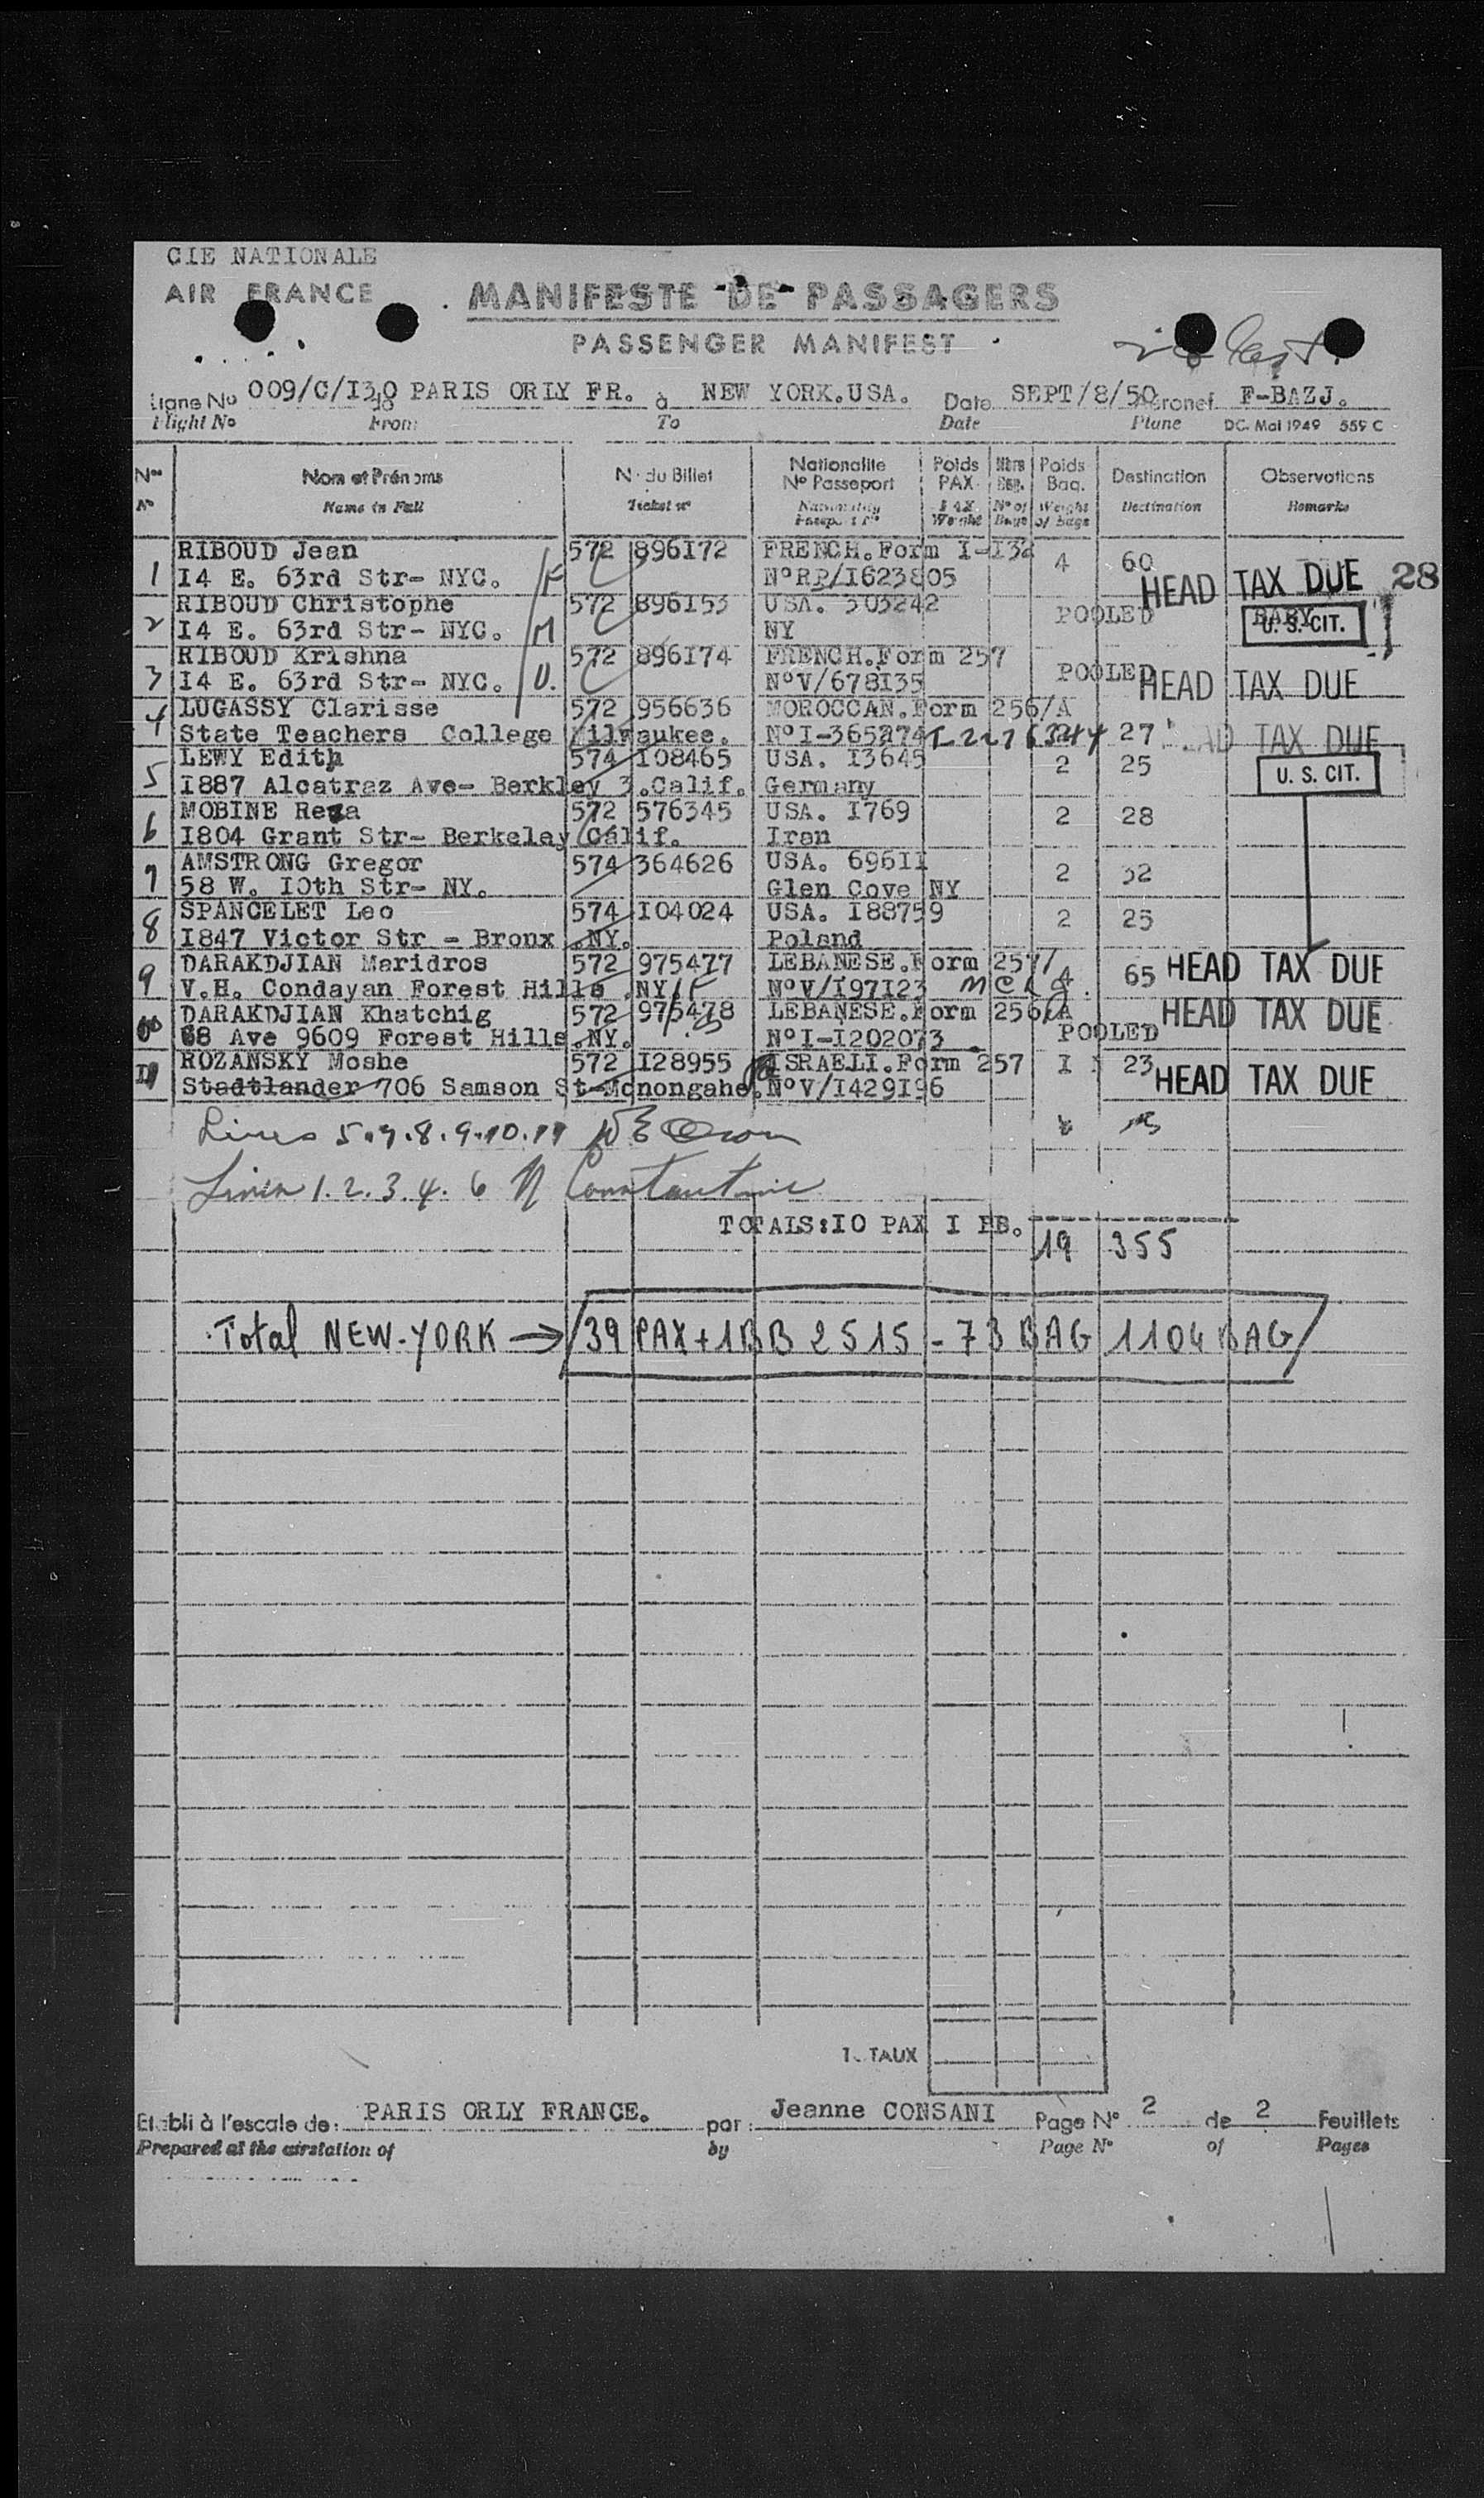 CIE NATIONALE
AIR FRANCE
MANIFESTE DE PASSAGERS
PASSENGER MANIFEST
Ligne No 009/C/I30 de PARIS ORLY FR. à NEW YORK.USA. Date SEPT/8/50 Aéronef F-BAZJ.
Flight No From To Date Plane DC. Mai 1949 559 C
Nos Nom et Prénoms No du Billet Nationalité Poids Nbre Poids Destination Observations
No Passeport PAX Bag. Baq.
No Name in Full Ticket no Nationality PAX No of Weight Destination Remarks
Passport No Weight Bags of bags
RIBOUD Jean 572 896I72 FRENCH.Form I-I32 4 60
1 I4 E. 63rd Str- NYC. F NoRP/I623805 HEAD TAX DUE 28
RIBOUD Christophe 572 896I53 USA. 303242 POOLED BABY
2 I4 E. 63rd Str- NYC. M NY U. S. CIT.
RIBOUD Krishna 572 896I74 FRENCH.Form 257 POOLED
3 I4 E. 63rd Str- NYC. U. NoV/678I35 HEAD TAX DUE
4 LUGASSY Clarisse 572 956636 MOROCCAN.Form 256/A
State Teachers College Milwaukee. NoI-365274 27 HEAD TAX DUE
LEWY Edith 574 I08465 USA. I3645 2 25
5 I887 Alcatraz Ave- Berkley 3.Calif. Germany U. S. CIT.
MOBINE Reza 572 576345 USA. I769 2 28
6 I804 Grant Str- Berkelay Calif. Iran
AMSTRONG Gregor 574 364626 USA. 696II 2 32
7 58 W. IOth Str- NY. Glen Cove NY
SPANCELET Leo 574 I04024 USA. I88759 2 25
8 I847 Victor Str - Bronx .NY. Poland
DARAKDJIAN Maridros 572 975477 LEBANESE.Form 257 4 65 HEAD TAX DUE
9 V.H. Condayan Forest Hills .NY. NoV/I97I23
DARAKDJIAN Khatchig 572 975478 LEBANESE.Form 256/A HEAD TAX DUE
10 68 Ave 9609 Forest Hills.NY. NoI-I202073 POOLED
ROZANSKY Moshe 572 I28955 ISRAELI.Form 257 I 23
11 Stadtlander 706 Samson St-Monongahe. NoV/I429I96 HEAD TAX DUE
Lines 5.7.8.9.10.11
Lines 1.2.3.4.6 Constantine
TOTALS:IO PAX I BB. 19 355
Total NEW-YORK → 39 PAX+1BB 2515 - 73 BAG 1104 BAG
TOTAUX
Etabli à l'escale de: PARIS ORLY FRANCE. par: Jeanne CONSANI Page No 2 de 2 Feuillets
Prepared at the airstation of by Page No of Pages